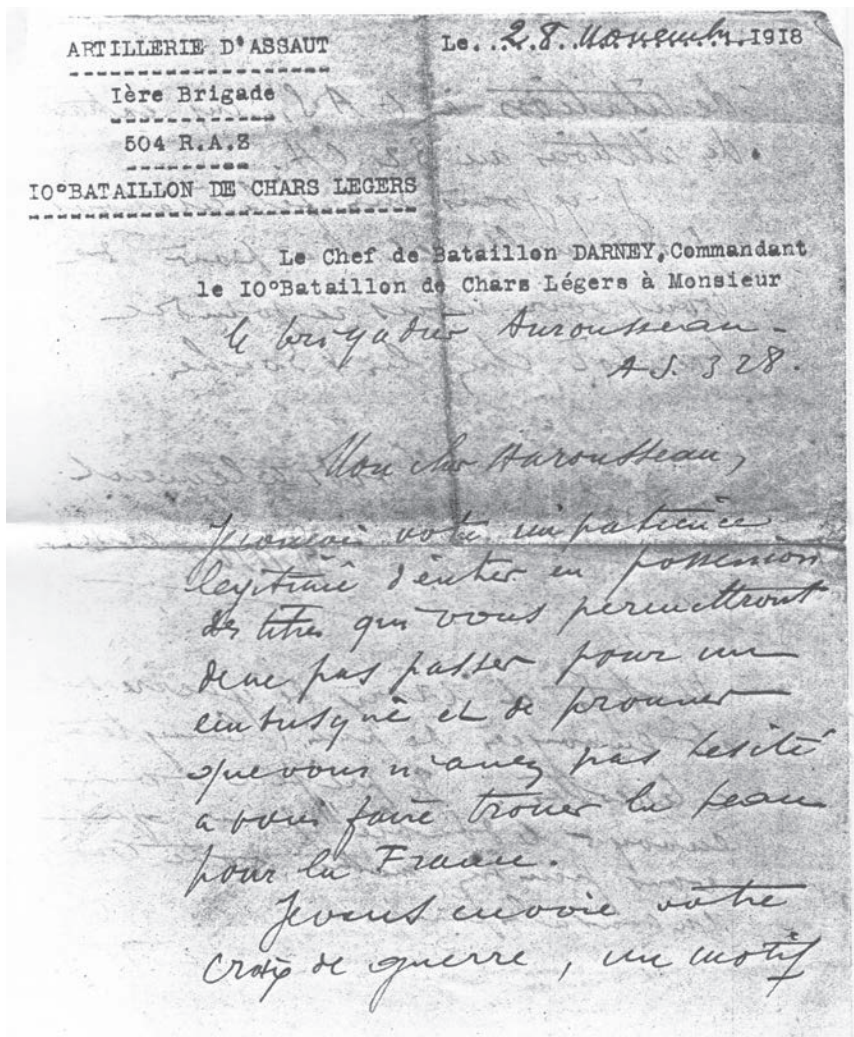 ARTILLERIE D'ASSAUT
Le...28 Novembre 1918
Ière Brigade
504 R.A.S
IO°BATAILLON DE CHARS LEGERS
Le Chef de Bataillon DARNEY, Commandant
le IO°Bataillon de Chars Légers à Monsieur
le brigadier Aurousseau -
A.S. 328.
Mon cher Aurousseau,
Je conçois votre impatience
légitime d'entrer en possession
des titres qui vous permettront
de ne pas passer pour un
embusqué et de prouver
que vous n'avez pas hésité
a vous faire trouer la peau
pour la France.
Je vous envoie votre
croix de guerre, un motif